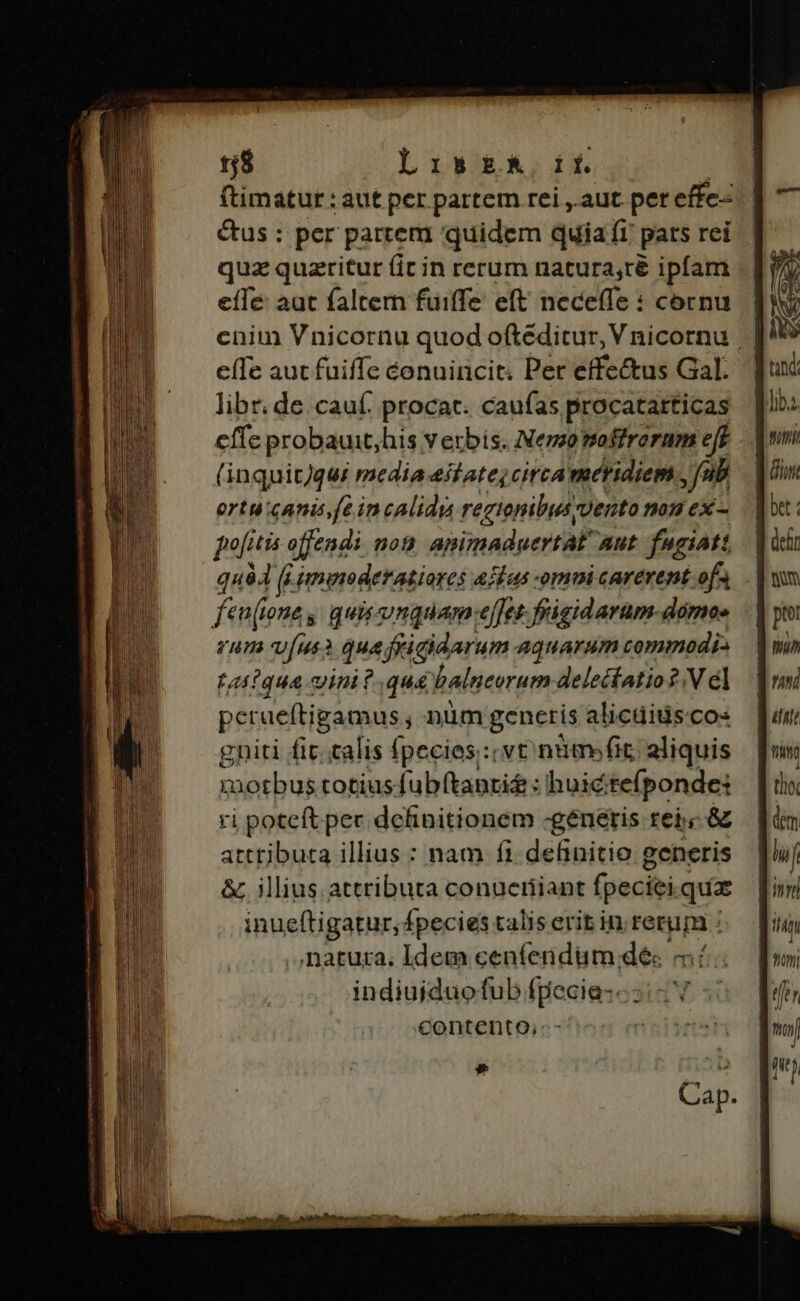 138 LIBER. II.
ſtimatur: aut per partem rei, aut per effe-
ctus: per partem quidem quia ſi pars rei
quæ quæritur ſit in rerum natura, rē ipſam
eſſe aut ſaltem fuiſſe eſt neceſſe: cornu
enim Vnicornu quod oſtēditur, Vnicornu
eſſe aut fuiſſe conuincit. Per effectus Gal.
libr. de cauſ. procat. cauſas procatarticas
eſſe probauit, his verbis. Nemo noſtrorum eſt
(inquit) qui media æſtate, circa meridiem, ſub
ortu canis, ſe in calidis regionibus vento non ex-
poſitis offendi non animaduertat aut fugiat:
quòd ſi immoderatiores æſtus omni carerent ofa
ſenſione, quis vnquam eſſet frigidarum domo-
rum vſus? quæ frigidarum aquarum commodi-
tas? quæ vini? quæ balneorum delectatio? Vel
perueſtigamus, nùm generis alicuius co-
gniti ſit talis ſpecies: vt nùm ſit aliquis
morbus totius ſubſtantiæ: huic reſponde-
ri poteſt per definitionem generis rei, &
attributa illius: nam ſi definitio generis
& illius attributa conueniant ſpeciei quæ
inueſtigatur, ſpecies talis erit in rerum
natura. Idem cenſendum de
indiuiduo ſub ſpecie
contento.
Cap.